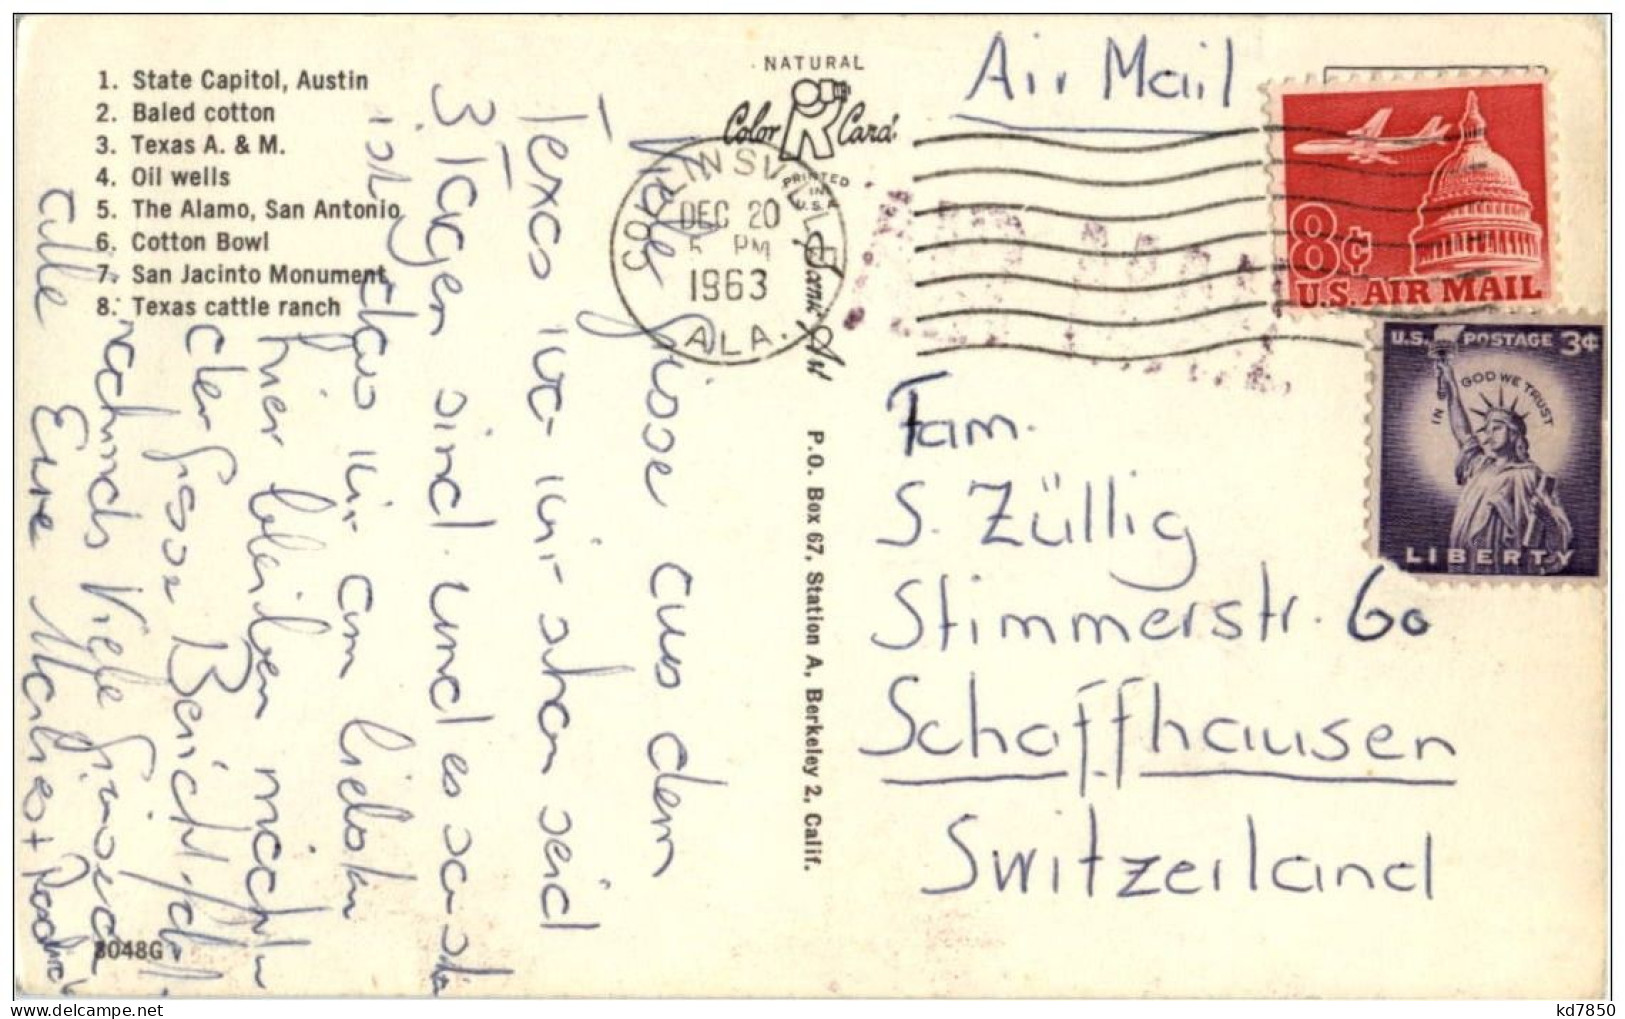 1. State Capitol, Austin
2. Baled cotton
3. Texas A. & M.
4. Oil wells
5. The Alamo, San Antonio
6. Cotton Bowl
7. San Jacinto Monument
8. Texas cattle ranch
NATURAL
Color Card
PRINTED
IN
U.S.A
Viele Grüsse aus dem
Texas wo wir schon seit
3 Tagen sind und es so sch
ist, dass wir am liebsten
hier bleiben möchten
der grosse Bericht
nochmals Viele Grüsse an
alle Eure
P.O. Box 67, Station A, Berkeley 2, Calif.
3048G
LINSVILL
DEC 20
PM
1963
ALA.
Air Mail
8¢
U.S. AIR MAIL
U.S. POSTAGE 3¢
IN GOD WE TRUST
LIBERTY
Fam.
S. Züllig
Stimmerstr. 60
Schaffhausen
Switzerland
kd7850